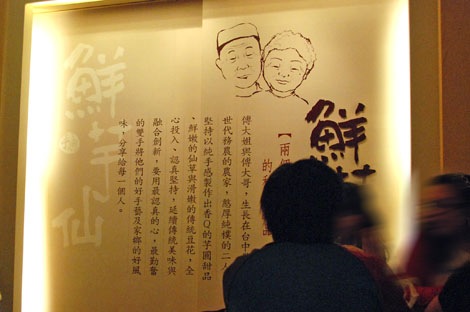 鮮芋
【兩個
的
傅大姐與傅大哥，生長在台中
世代務農的農家，憨厚純樸的二人
堅持以純手感製作出香Q的芋圓甜品
、鮮嫩的仙草與滑嫩的傳統豆花，全
心投入、認真堅持，延續傳統美味與
融合創新，要用最認真的心，最勤奮
的雙手將他們的好手藝及家鄉的好風
味，分享給每一個人。
鮮芋仙